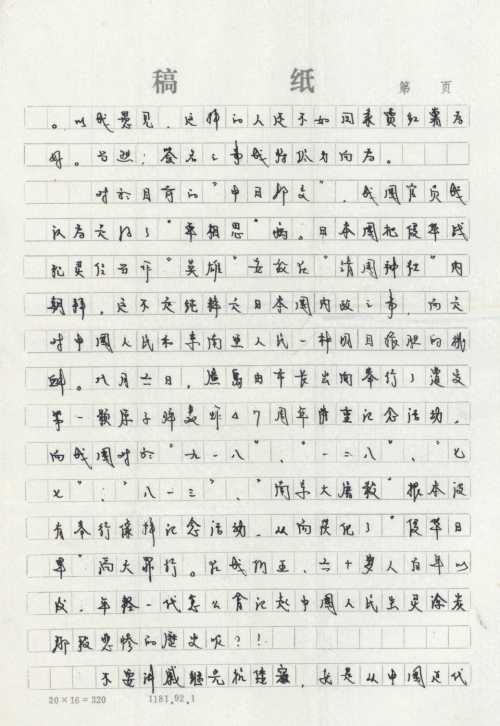 稿 纸
第 页
。以我愚见，这样的人还不如回家卖红薯为
好。当然：签名之事我将极力向为。
对於目前的“中日邦交”，我国官员我
认为是得了“单相思”病。日本国把侵华战
犯灵位当作“英雄”安放在“靖国神社”内
朝拜，这不是纯粹是日本国内政之事，而是
对中国人民和东南亚人民一种明目张胆的挑
衅。八月六日，广岛由市长出面举行了遭受
第一颗原子弹轰炸47周年隆重记念活动，
而我国对於“九一八”、“一二八”、“七
七”、“八一三”、“南京大屠殺”根本没
有举行像样记念活动，从而淡化了“侵华日
军”向天罪行。在我们五、六十岁人百年以
后，年轻一代怎么会记起中国人民生灵涂炭
那段悲惨的歷史呢？！
不要讲戚继光抗倭寇，就是从中国近代
20×16=320 1181.92.1